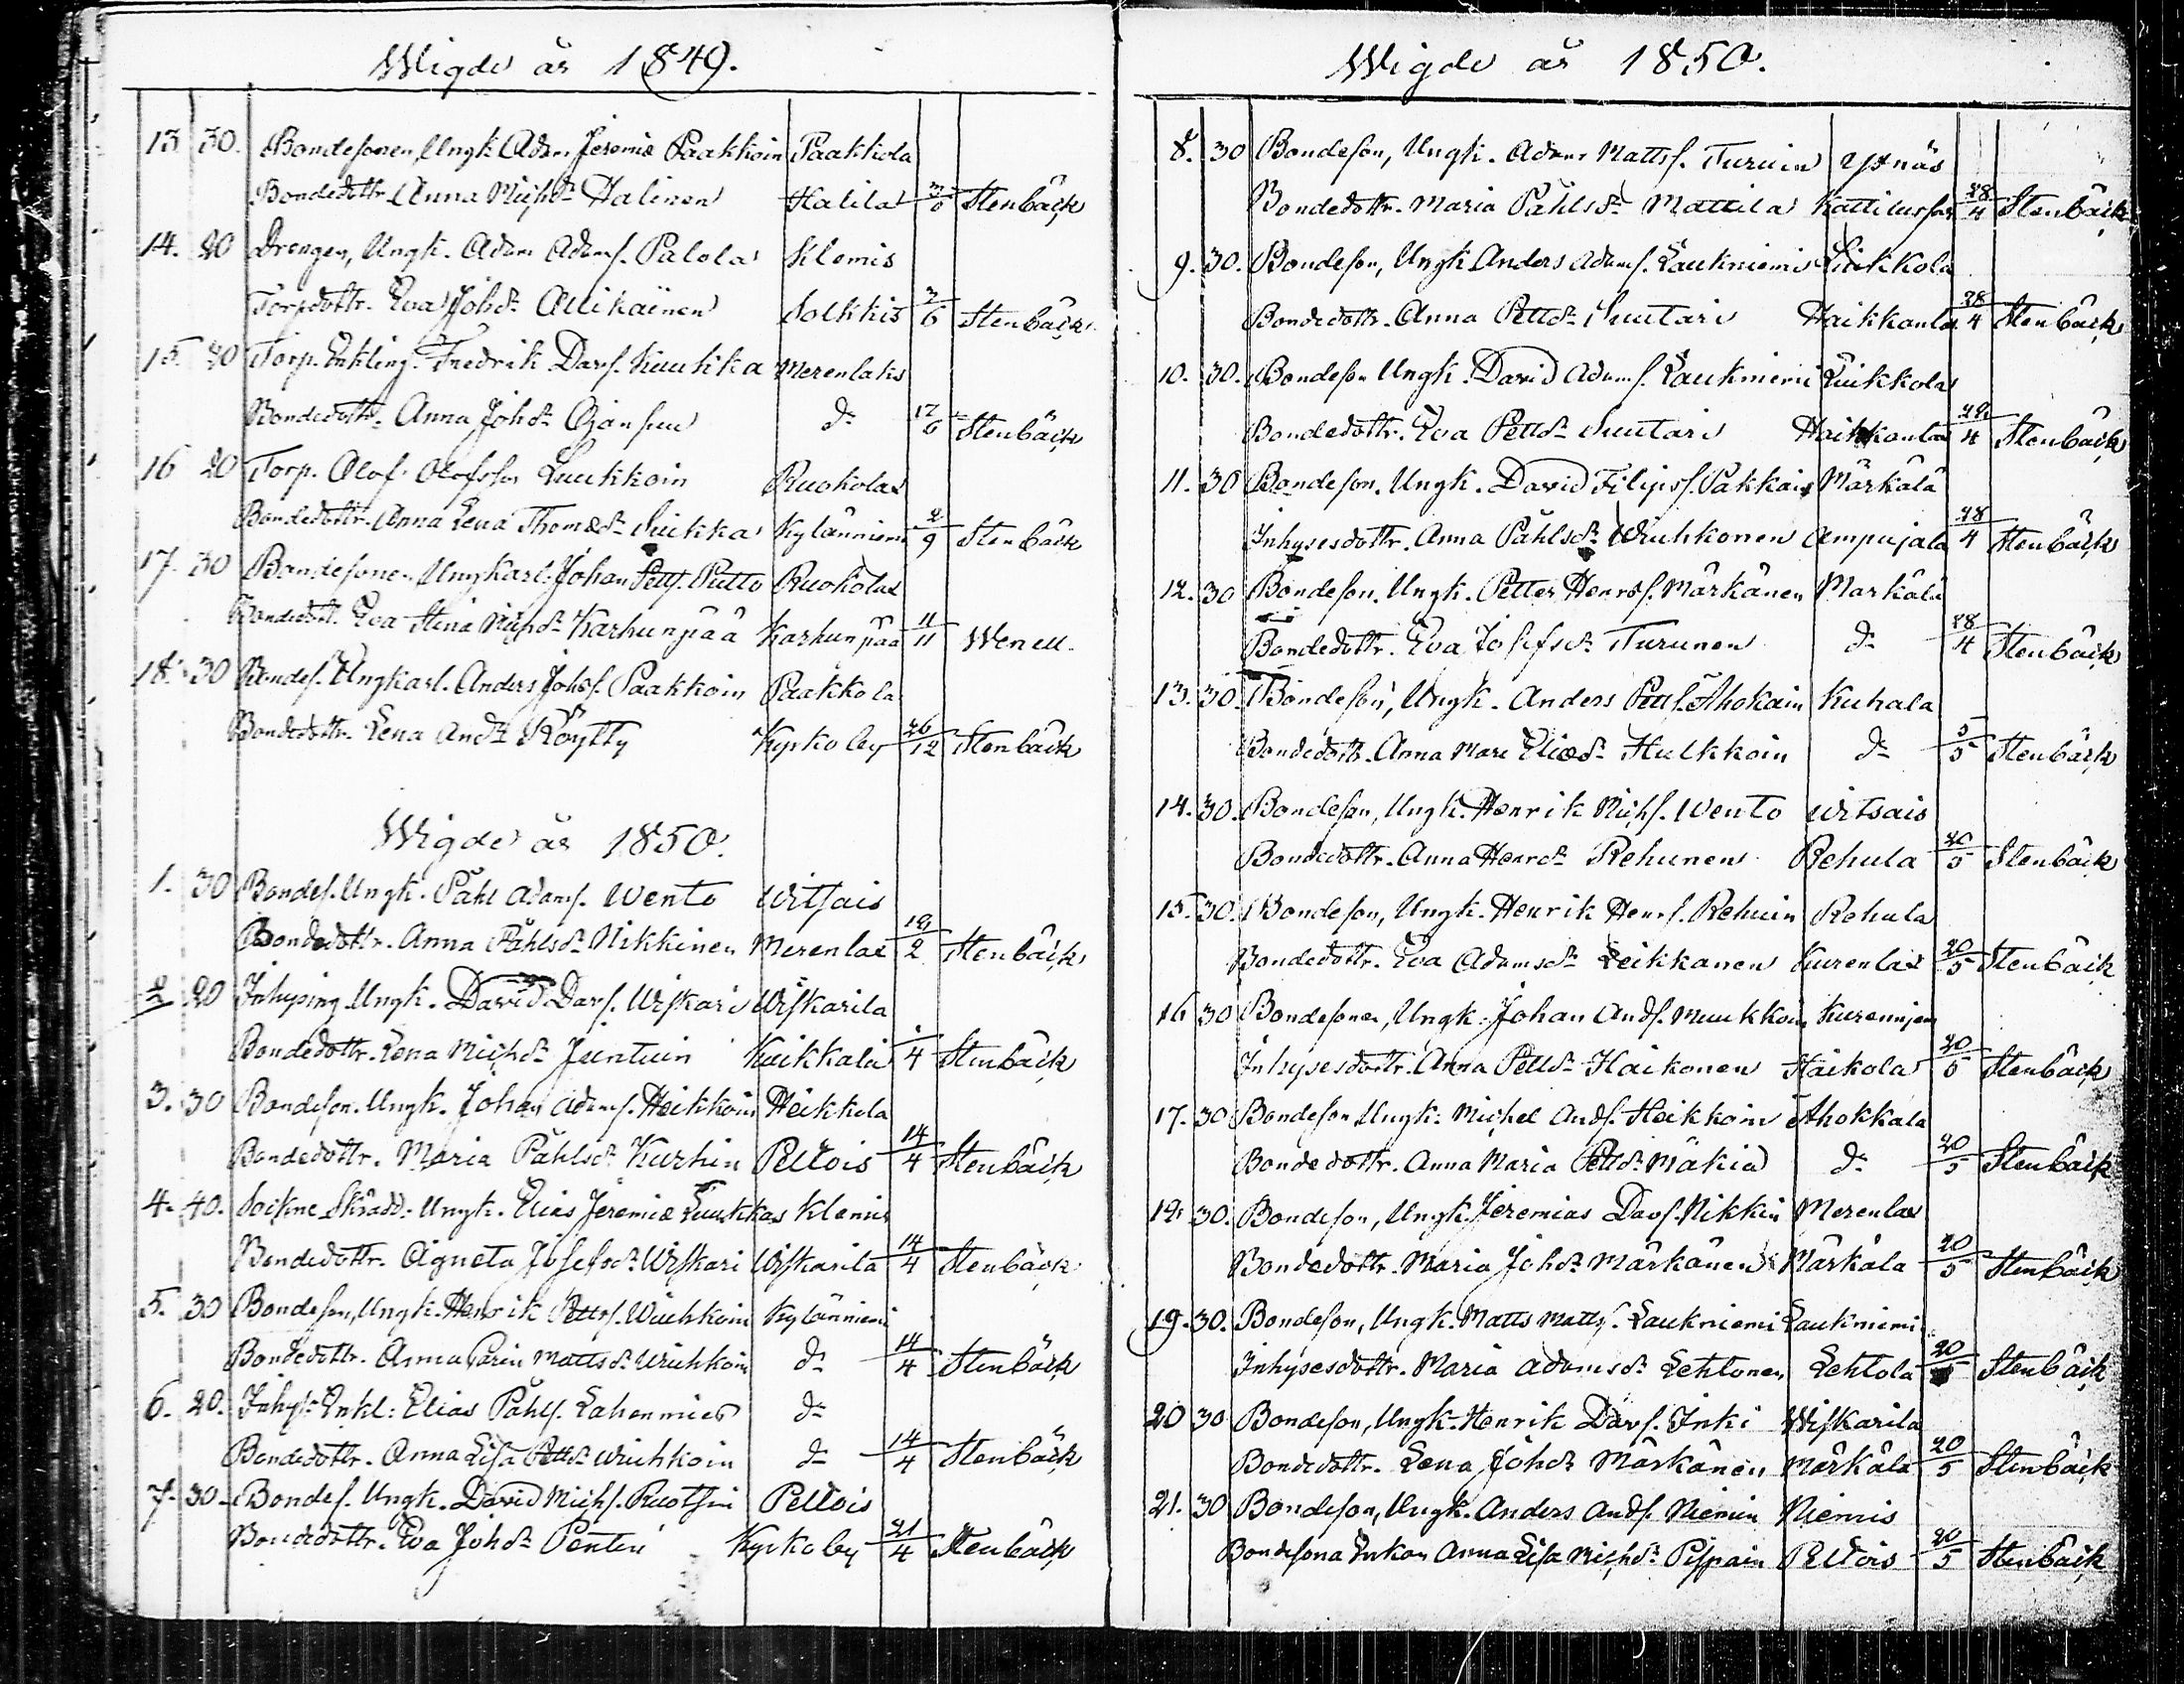 Wigde år 1849.
13 30. Bondesonen, Ungk. Adam Jeremiæ Paakkoin Paakkola
Bondedottr. Anna Michsdr Halinen Halila 3/6 Stenbäck
14. 20 Drengen, Ungk. Adam Adamss. Palola Klemis
Torpdottr. Eva Johsdr Ollikainen Solkkis 3/6 Stenbäck
15. 20 Torp. Enkling. Fredrik Davss. Kuukka Merenlaks
Bondedottr. Anna Johsdr dº 17/6 Stenbäck
16 20 Torp. Olof Olofsson Luukkoin Ruokolax
Bondedottr. Anna Lena Thomædr Suikka Kylänniemi 2/9 Stenbäck
17. 30 Bondesonen, Ungkarl. Johan Petts. Putto Ruokolax
Bondedott. Eva Stina Michsdr Karhunpää Karhunpää 11/11 Wenell.
18. 30 Bondes. Ungkarl. Anders Johss. Paakkoin Paakkola
Bondedottr. Lena Andsdr Köytty Kyrkoby 26/12 Stenbäck
Wigde år 1850.
1. 30 Bondes. Ungk. Påhl Adamss. Wento Witsais
Bondedottr. Anna Påhlsdr Nikkinen Merenlax 19/2 Stenbäck
2 20 Inhysing Ungk. David Davss. Wiskari Wiskarila
Bondedottr. Lena Michsdr Juntuin Kuikkala 1/4 Stenbäck
3. 30 Bondeson. Ungk. Johan Adamss. Heikkoin Heikkila
Bondedottr. Maria Påhlsdr Kurhin Peltois 14/4 Stenbäck
4. 40. Sockne Skrädd. Ungk. Elias Jeremiæ Luukkas Klemis
Bondedottr. Agneta Josefsdr Wiskari Wiskarila 14/4 Stenbäck
5. 30 Bondeson, Ungk. Henrik Pettss. Wiuhkoin Kylänniemi
Bondedottr. Anna Carin Mattsdr Wiuhkoin dº 14/4 Stenbäck
6. 20. Inhys. Enkl: Elias Påhls. Lahenmies dº
Bondedottr. Anna Lisa Pettsdr Wiuhkoin dº 14/4 Stenbäck
7. 30 Bondes. Ungk. David Michss. Ruotsin Peltois
Bondedottr. Eva Johsdr Penttin Kyrkoby 21/4 Stenbäck
Wigde år 1850.
8. 30 Bondeson, Ungk. Adam Mattss. Turuin
Bondedottr. Maria Påhlsdr Mattila 28/4 Stenbäck
9. 30. Bondeson, Ungk. Anders Adamss. Laukniemi Luikkola
Bondedottr. Anna Pettsdr Suutari Haikkanla 28/4 Stenbäck
10. 30. Bondeson Ungk. David Adamss. Laukniemi Luikkola
Bondedottr. Eva Pettsdr Suutari Haikkanla 28/4 Stenbäck
11. 30 Bondeson. Ungk. David Filipss. Pakkain Märkälä
Inhysesdottr. Anna Påhlsdr Wiuhkonen Ampujala 28/4 Stenbäck
12. 30 Bondeson. Ungk. Petter Henrss. Märkänen Markälä
Bondedottr. Eva Josefsdr Turunen dº 28/4 Stenbäck
13. 30. Bondeson, Ungk. Anders Petts. Ahokain Kuhala
Bondedottr. Anna Mari Eliædr Hulkkoin dº 5/5 Stenbäck
14. 30. Bondeson, Ungk. Henrik Michs. Wento Witsais
Bondedottr. Anna Henrsdr Rehunen Rehula 20/5 Stenbäck
15. 30. Bondeson, Ungk. Henrik Henrs. Rehuin Rehula
Bondedottr. Eva Adamsdr Leikkanen Kurenlax 20/5 Stenbäck
16 30 Bondesonen, Ungk. Johan Ands. Muukkoin
Inhysesdottr. Anna Pettsdr Haikonen Haikola 20/5 Stenbäck
17. 30 Bondeson Ungk. Michel Ands. Heikkoin Ahokkala
Bondedottr. Anna Maria Pettsdr Mäkiä dº 20/5 Stenbäck
18. 30. Bondeson, Ungk. Jeremias Davs. Nikkin Merenlax
Bondedottr. Maria Johsdr Märkänen Märkälä 20/5 Stenbäck
19. 30. Bondeson, Ungk. Matts Matts. Laukniemi Laukniemi
Inhysesdottr. Maria Adamsdr Lehtonen Lehtola 20/5 Stenbäck
20 30 Bondeson, Ungk. Henrik Davs. Inki Wiskarila
Bondedottr. Lena Johsdr Märkänen Märkälä 20/5 Stenbäck
21. 30 Bondeson, Ungk. Anders Ands. Niemin Niemis
Bondesona Enkan Anna Lisa Michsdr Pispain Peltois 20/5 Stenbäck